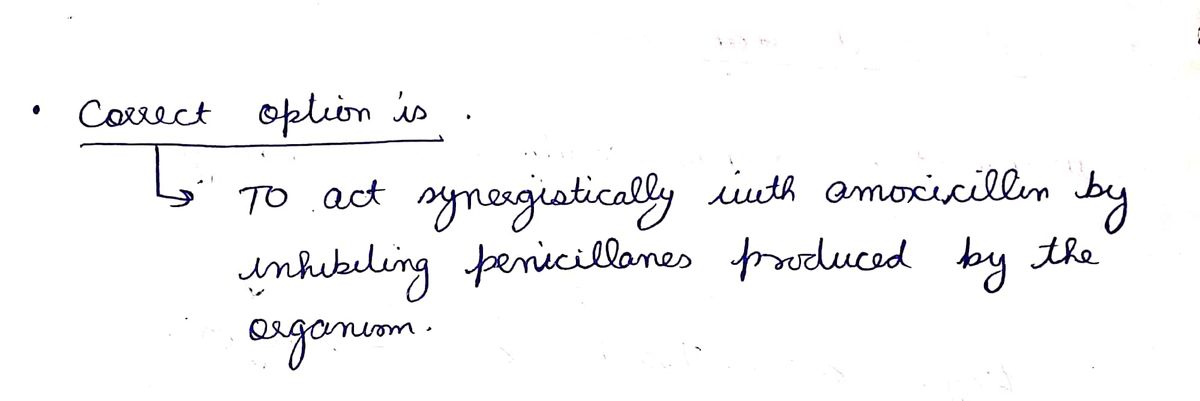 • Correct option is .
To act synergistically with amoxicillin by
inhibiting penicillanes produced by the
organism.